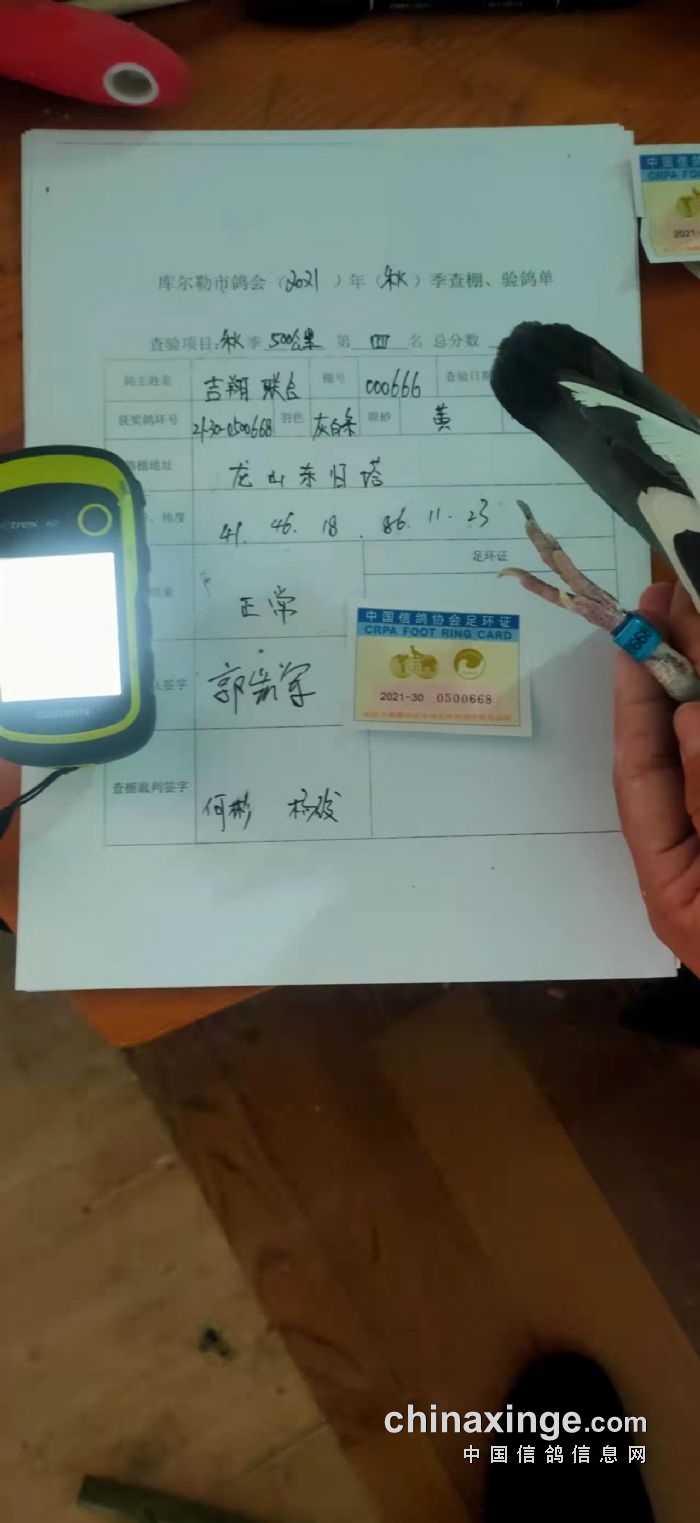 中国信鸽
CRPA FOO
2021-
库尔勒市鸽会（2021）年（秋）季查棚、验鸽单
查验项目:秋季 500公里 第 四 名 总分数
鸽主姓名 吉翔 联合 棚号 000666 查验日期
获奖鸽环号 21-30-0500668 羽色 灰白条 眼砂 黄
鸽棚地址 龙山东归塔
、纬度 41. 46. 18. 86. 11. 23
足环证
结果 正常
中国信鸽协会足环证
CRPA FOOT RING CARD
2021-30 0500668
人签字
查棚裁判签字 何彬
etrex 10
GARMIN
chinaxinge.com
中国信鸽信息网